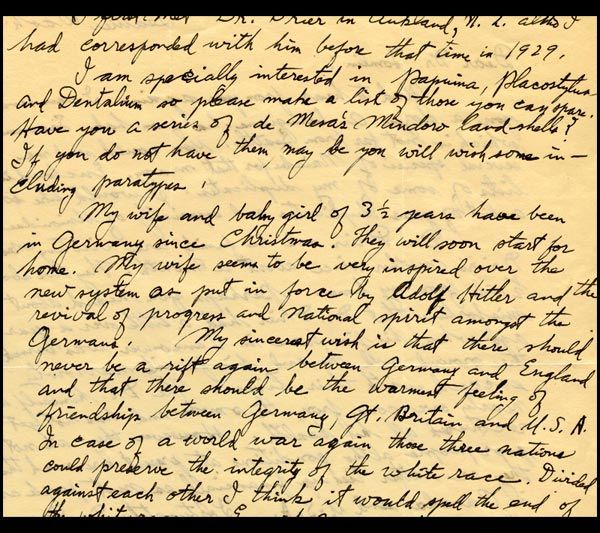 I first met Dr. Drier in Aukland, N. Z. altho I
had corresponded with him before that time in 1929.
I am specially interested in Papuina, Placostylus
and Dentalium so please make a list of those you can spare.
Have you a series of de Mesa's Mindoro land shells?
If you do not have them, may be you will wish some in-
cluding paratypes.
My wife and baby girl of 3½ years have been
in Germany since Christmas. They will soon start for
home. My wife seems to be very inspired over the
new system as put in force by Adolf Hitler and the
revival of progress and national spirit amongst the
Germans. My sincerest wish is that there should
never be a rift again between Germany and England
and that there should be the warmest feeling of
friendship between Germany, Gt. Britain and U. S. A.
In case of a world war again those three nations
could preserve the integrity of the white race. Divided
against each other I think it would spell the end of
the white race